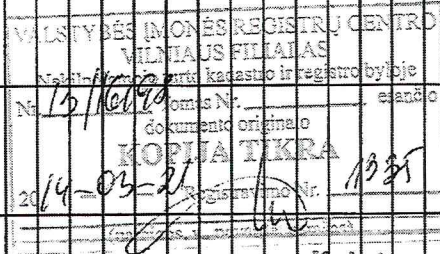 VALSTYBĖS ĮMONĖS REGISTRŲ CENTRO
VILNIAUS FILIALAS
Nekilnojamojo turto kadastro ir registro byloje
Nr. 13/16193 Tomas Nr. esančio
dokumento originalo
KOPIJA TIKRA
2014-03-21 Registravimo Nr. 1335